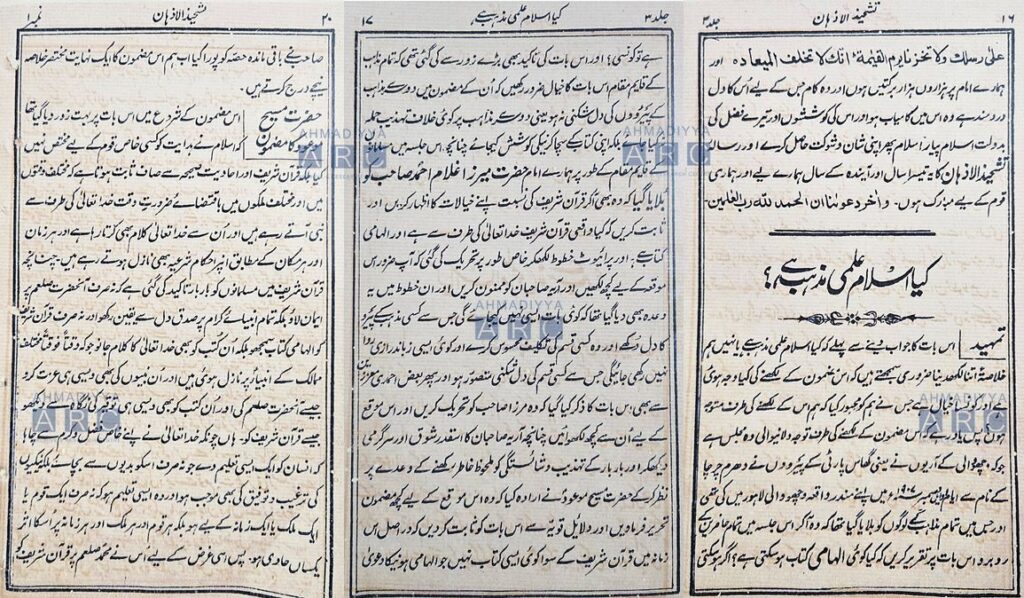 ۱۶
تشحیذ الاذہان
جلد ۳
علیٰ رسلک ولا تخزنا یوم القیٰمۃ انک لا تخلف المیعادہ اور
ہمارے امام پر ہزاروں ہزار برکتیں ہوں اور وہ کام جس کے لیے اُس کا دل
دردمند ہے وہ اس میں کامیاب ہو اور اس کی کوششوں اور تیرے فضل کی
بدولت اسلام پیارا اسلام پھر اپنی شان و شوکت حاصل کرے اور رسالہ
تشحیذ الاذہان کا یہ تیسرا سال اور آیندہ کے سال ہمارے لیے اور ہماری
قوم کے لیے مبارک ہوں۔ واٰخر دعوٰنا ان الحمد للہ رب العٰلمین۔
کیا اسلام علمی مذہب ہے؟
تمہید
اس بات کا جواب دینے سے پہلے کہ کیا اسلام علمی مذہب ہے یا نہیں ہم
خلاصۃً اتنا لکھ دینا ضروری سمجھتے ہیں کہ اس مضمون کے لکھنے کی کیا وجہ ہوئی
اور وہ کونسا خیال ہے جس نے ہم کو مجبور کیا کہ ہم اس کے لکھنے کی طرف متوجہ
ہوں پس یاد رہے کہ اس مضمون کے لکھنے کی طرف توجہ دلانیوالی وہ مجلس ہے
جو کہ وچھووالی کے آریوں نے یعنی گھاس پارٹی کے پیرووں نے دھرم چرچا
کے نام سے نومبر ۱۹۰۷ء میں اپنے مندر واقعہ وچھو والی لاہور میں کی تھی
اور جس میں تمام مذاہب کے لوگوں کو بلایا گیا تھا کہ وہ آکر اس جلسہ میں تمام حاضرین کے
روبرو اس بات پر تقریر کریں کہ کیا کوئی الہامی کتاب ہو سکتی ہے؟ اگر ہو سکتی
جلد ۳
کیا اسلام علمی مذہب ہے
۱۷
ہے تو کونسی؟ اور اس بات کی تاکید بھی بڑے زور سے کی گئی تھی کہ تمام مذاہب
کے قایم مقام اس بات کا خیال ضرور رکھیں کہ اُن کے مضمون میں دوسرے مذاہب
کے پیرووں کی دل شکنی نہ ہو یعنی دوسرے مذاہب پر کوئی خلاف تہذیب حملہ
نہ کیا جائے بلکہ اپنی کتاب کے سچا کرنیکی کوشش کیجائے چنانچہ اس جلسہ میں اسلام
کے قایم مقام کے طور پر ہمارے امام حضرت میرزا غلام احمد صاحب کو
بلایا گیا کہ وہ بھی آکر قرآن شریف کی نسبت اپنے خیالات کا اظہار کریں اور
ثابت کریں کہ کیا واقعی قرآن شریف خدا تعالیٰ کی طرف سے ہے اور الہامی
کتاب ہے۔ اور پرائیوٹ خطوط لکھکر خاص طور پر تحریک کی گئی کہ آپ ضرور اس
موقعہ کے لیے کچھ لکھیں اور آریہ صاحبان کو ممنون کریں اور ان خطوط میں یہ
وعدہ بھی دیا گیا تھا کہ کوئی بات ایسی نہیں کیجائے گی جس سے کسی مذہب کے پیرو
کا دل دُکھے اور وہ کسی قسم کی تکلیف محسوس کرے اور کوئی ایسی زبان درازی روا
نہیں رکھی جائیگی جس سے کسی قسم کی دل شکنی متصور ہو اور پھر بعض احمدی مریدوں
سے بھی اس بات کا ذکر کیا گیا کہ وہ مرزا صاحب کو تحریک کریں اور اس موقع
کے لیے اُن سے کچھ لکھوائیں چنانچہ آریہ صاحبان کا اسقدر شوق اور سرگرمی
دیکھکر اور بار بار کے تہذیب و شائستگی کو ملحوظ خاطر رکھنے کے وعدے پر
نظر کرکے حضرت مسیح موعودؑ نے ارادہ کیا کہ وہ اس موقع کے لیے کچھ مضمون
تحریر فرماویں اور دلایل قویّہ سے اس بات کو ثابت کردیں کہ دراصل اس
زمانہ میں قرآن شریف کے سوا کوئی ایسی کتاب نہیں جو الہامی ہونیکا دعویٰ
۲۰
تشحیذ الاذہان
نمبر ۱
صاحب نے باقی ماندہ حصہ کو پورا کیا اب ہم اس مضمون کا ایک نہایت مختصر خلاصہ
نیچے درج کرتے ہیں۔
حضرت مسیح
موعود کا مضمون
اس مضمون کے شروع میں اس بات پر بہت زور دیا گیا تھا
کہ اسلام نے ہدایت کو کسی خاص قوم کے لیے مختص نہیں
کیا بلکہ قرآن شریف اور احادیث صحیحہ سے صاف ثابت ہوتا ہے کہ مختلف وقتوں
میں اور مختلف ملکوں میں باقتضائے ضرورتِ وقت خدا تعالیٰ کی طرف سے
نبی آتے رہے ہیں اور اُن سے خدا تعالیٰ کلام بھی کرتا رہا ہے اور ہر زمان
اور ہر مکان کے مطابق انپر احکام شرعیہ بھی نازل ہوتے رہے ہیں۔ چنانچہ
قرآن شریف میں مسلمانوں کو بار بار تاکید کی گئی ہے کہ نہ صرف آنحضرت صلعم پر
ایمان لاؤ بلکہ تمام انبیائے کرام پر صدق دل سے یقین رکھو اور نہ صرف قرآن شریف
کو الہامی کتاب سمجھو بلکہ اُن کتب کو بھی خدا تعالیٰ کا کلام جانو جو کہ وقتاً فوقتاً مختلف
ممالک کے انبیاء پر نازل ہوئی ہیں اور اُن نبیوں کی بھی ویسی ہی عزت کرو
جیسے آنحضرت صلعم کی اور اُن کتب کو بھی ویسی ہی عزت کی نگاہ سے دیکھو
جیسے قرآن شریف کو۔ ہاں چونکہ خدا تعالیٰ نے اپنے خاص فضل و کرم سے چاہا
کہ انسان کو ایک ایسی تعلیم دے جو نہ صرف اسکو بدیوں سے بچائے بلکہ نیکیوں
کی ترغیب و توفیق کی بھی موجب ہو اور وہ ایسی تعلیم ہو کہ نہ صرف ایک قوم یا
ایک ملک یا ایک زمانہ کے لیے ہو بلکہ ہر قوم اور ہر ملک اور ہر زمانہ پر اُسکا اثر
یکساں حاوی ہو۔ پس اسی غرض کے لیے اس نے محمد صلعم پر قرآن شریف کے
AHMADIYYA
ARC